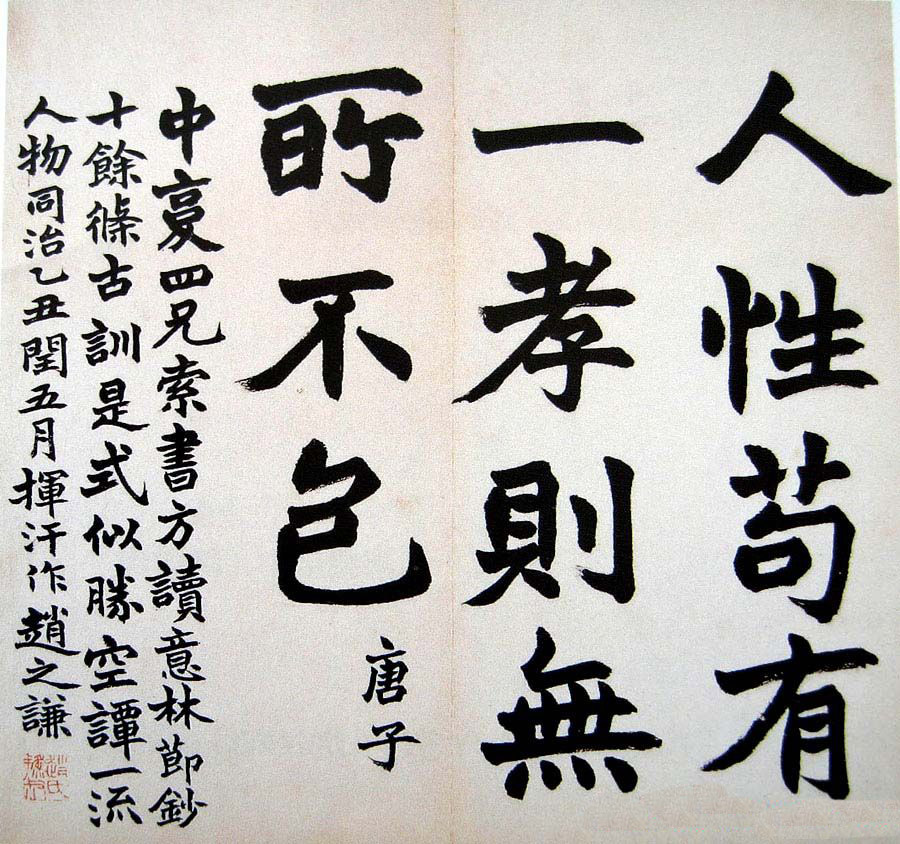 人性苟有
一孝則無
所不包
唐子
中四兄索書方讀意林節鈔
十餘條古訓是式似勝空譚一流
人物同治乙丑閏五月揮汗作趙之謙